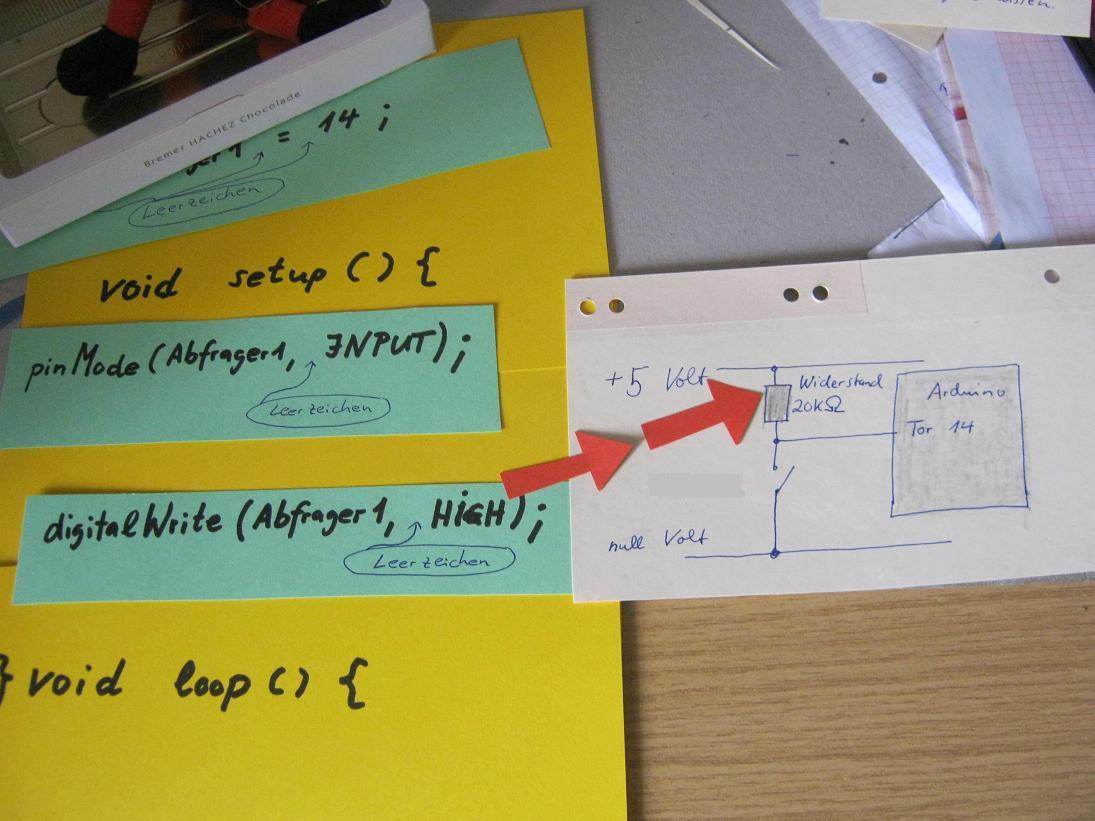 Bremer HACHEZ Chocolade
= 14 ;
Leerzeichen
void setup () {
pinMode (Abfrager1, INPUT);
Leerzeichen
digitalWrite (Abfrager1, HIGH);
Leerzeichen
} void loop () {
+5 Volt
Widerstand
20kΩ
Arduino
Tor 14
null Volt